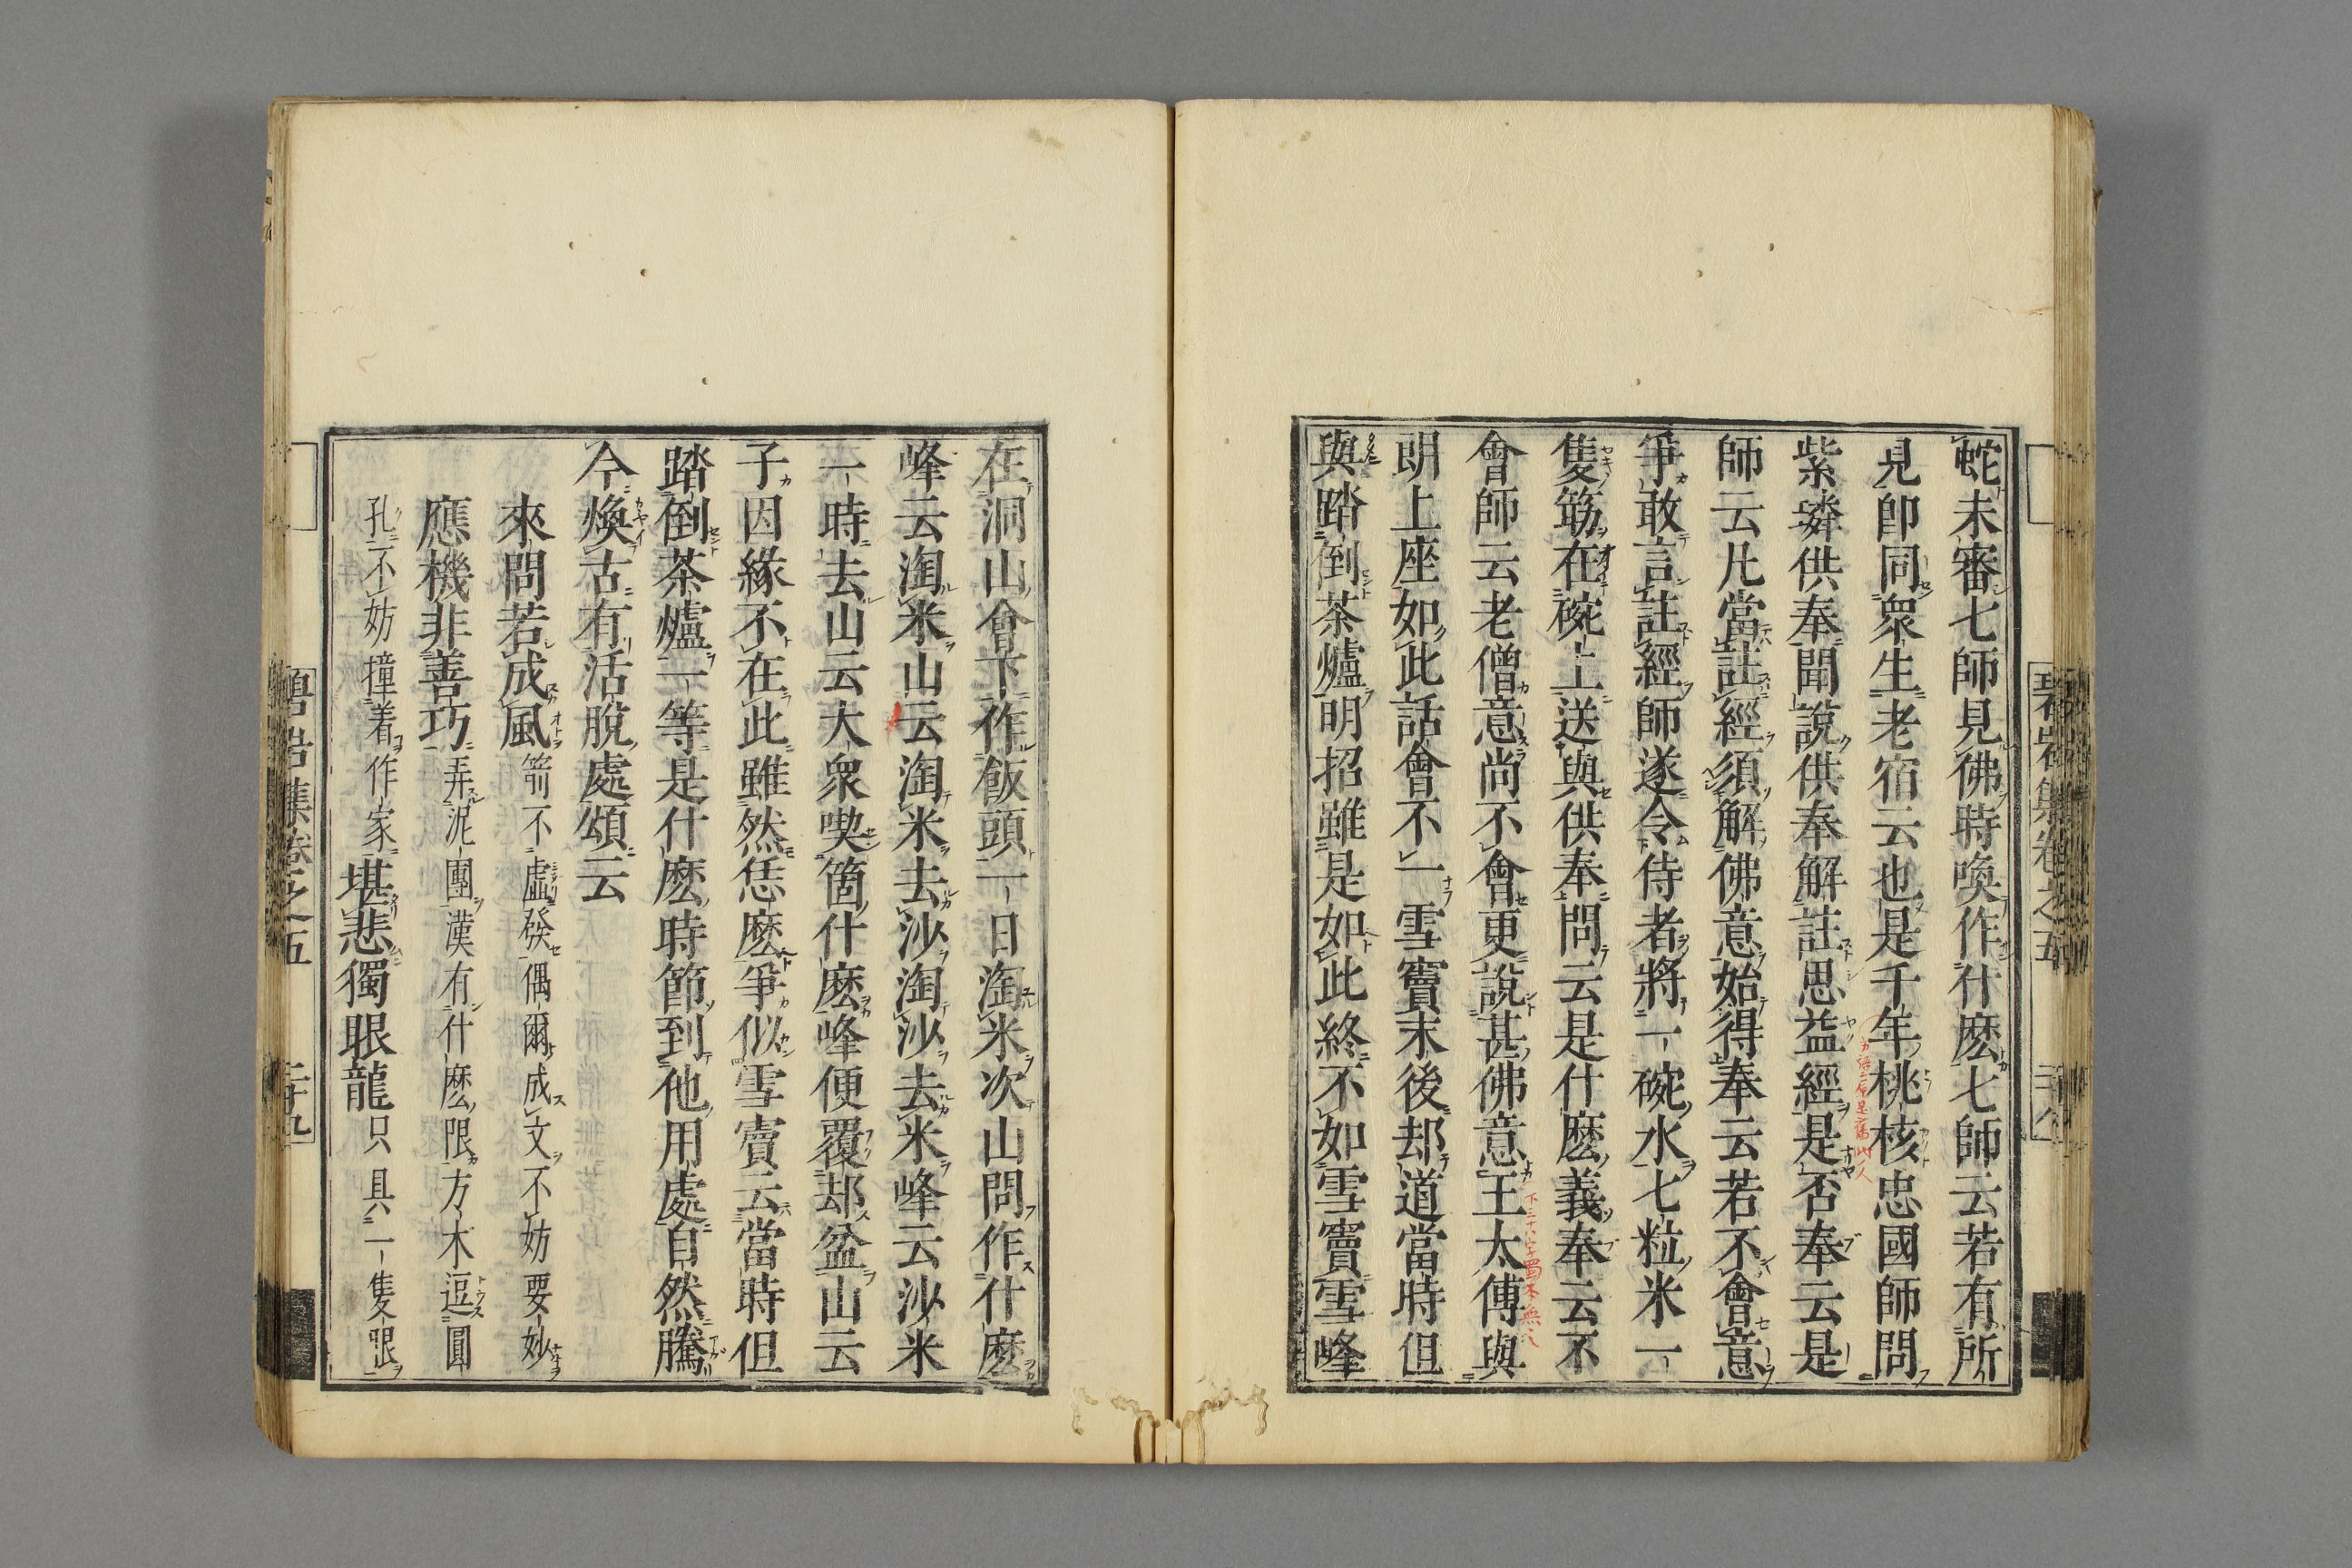 蛇未審七師見佛時喚作什麽七師云若有所
見卽同衆生老宿云也是千年桃核忠國師問
紫璘供奉聞說供奉解註思益經是否奉云是
師云凡當註經須解佛意始得奉云若不會意
爭敢言註經師遂令侍者將一碗水七粒米一
隻筯在碗上送與供奉問云是什麽義奉云不
會師云老僧意尚不會更說甚佛意王太傅與
朗上座如此話會不一雪竇末後却道當時但
與踏倒茶爐明招雖是如此終不如雪竇雪峰
碧岩集卷之五
在洞山會下作飯頭一日淘米次山問作什麽
峰云淘米山云淘米去沙淘沙去米峰云沙米
一時去山云大衆喫箇什麽峰便覆却盆山云
子因緣不在此雖然恁麽爭似雪竇云當時但
踏倒茶爐一等是什麽時節到他用處自然騰
今煥古有活脫處頌云
來問若成風箭不虛發偶爾成文不妨要妙
應機非善巧弄泥團漢有什麽限方木逗圓
孔不妨撞着作家堪悲獨眼龍只具一隻眼
碧岩集卷之五